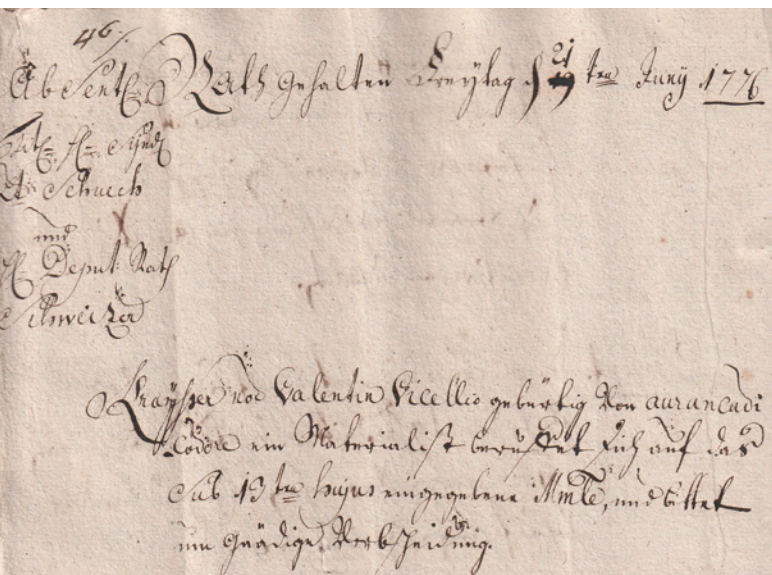 46/.
Absent:
Rath gehalten Freytag d 21 19 ten Juny 1776
Tit: H: Synd:
Schuech
und
H: Deput: Rath
Schweizer
noe Valentin Vicellio gebürtig von
ein Materialist beruffet sich auf das
sub 13 ten hujus eingegebene Mmle, und bittet
um gnädige Verbscheidung.